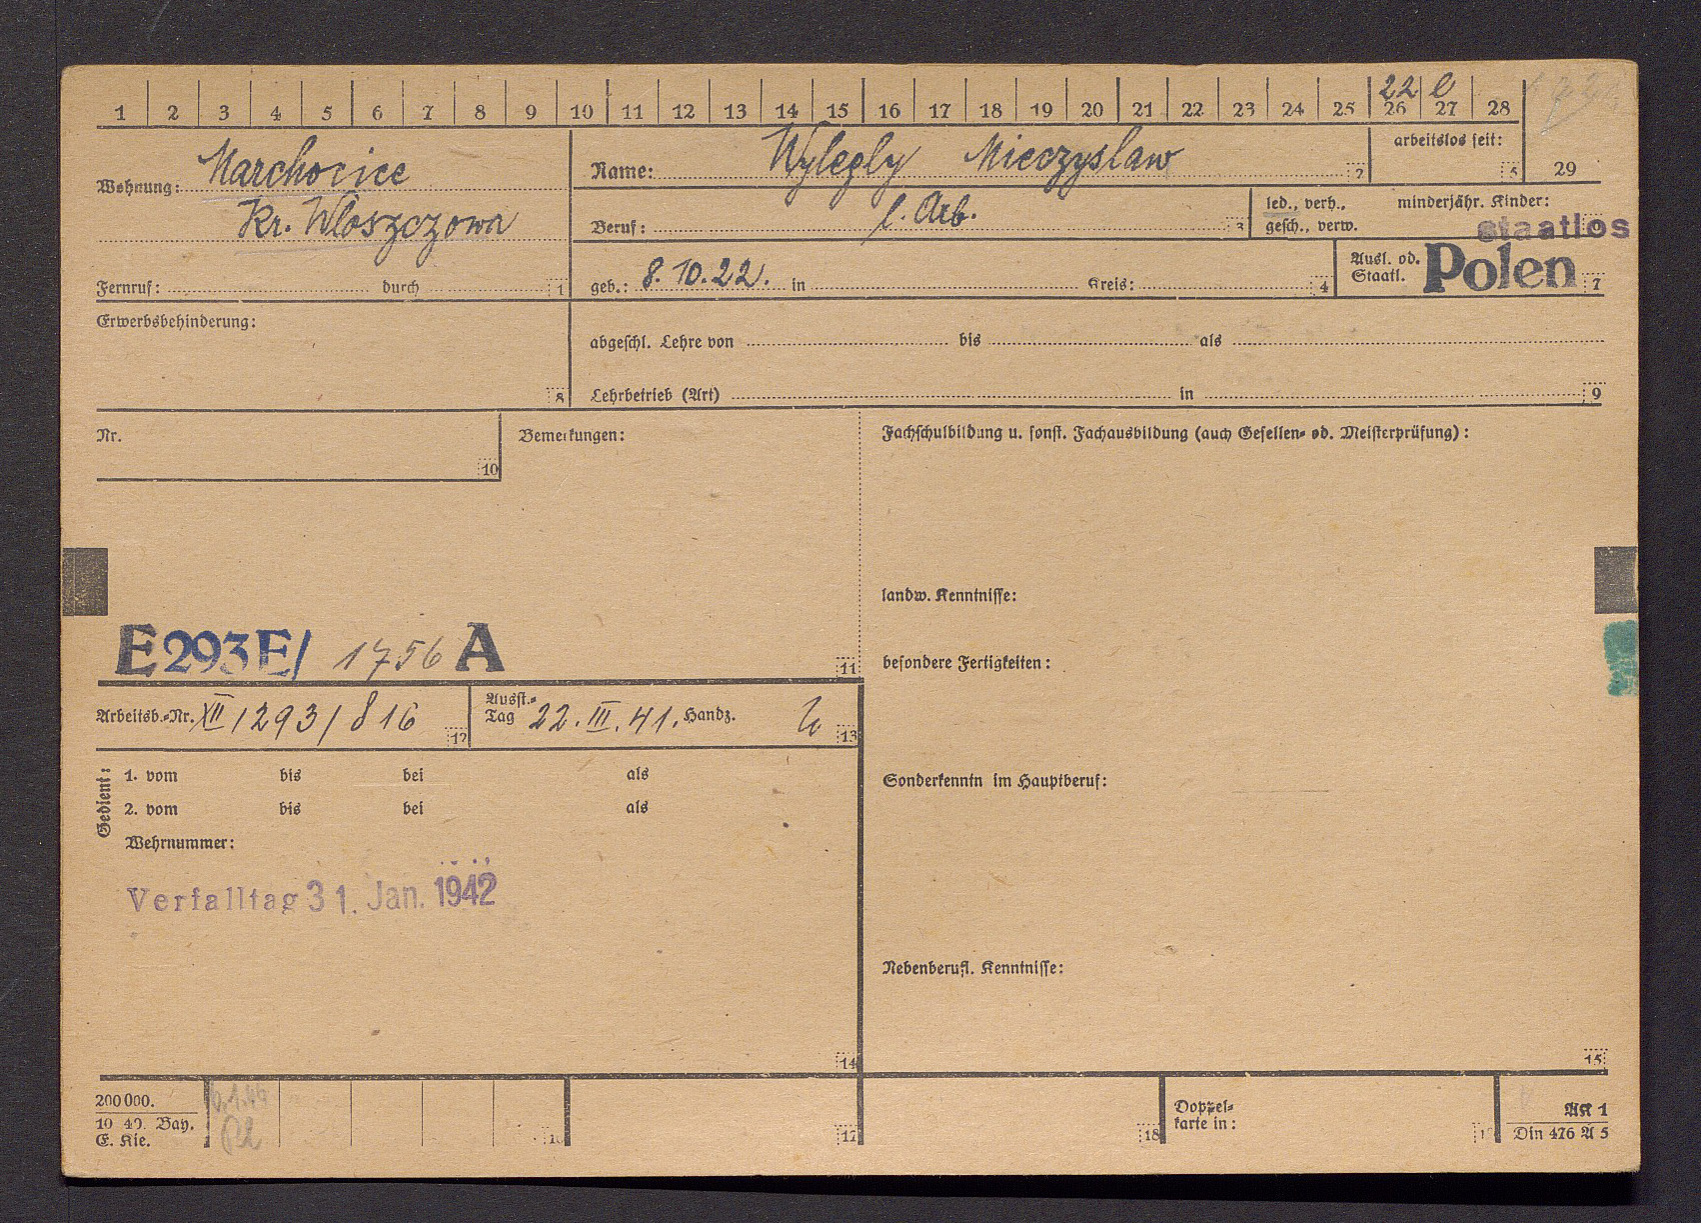 22 l
1 2 3 4 5 6 7 8 9 10 11 12 13 14 15 16 17 18 19 20 21 22 23 24 25 26 27 28
Wohnung: Marchocice
Kr. Wloszczowa
Fernruf: durch 1
Name: Wylezly Mieczyslaw 2
arbeitslos seit: 5
29
Beruf: l. Arb. 3
led., verh.,
gesch., verw.
minderjähr. Kinder:
staatlos
geb.: 8.10.22. in Kreis: 4
Ausl. od.
Staatl. Polen 7
Erwerbsbehinderung:
8
abgeschl. Lehre von bis als
Lehrbetrieb (Art) in 9
Nr.
10
Bemerkungen:
Fachschulbildung u. sonst. Fachausbildung (auch Gesellen- od. Meisterprüfung):
landw. Kenntnisse:
E293E/ 1756 A
11
besondere Fertigkeiten:
Arbeitsb.-Nr. XII/293/816 12
Ausst.-
Tag 22.III.41. Handz. 13
Gedient:
1. vom bis bei als
2. vom bis bei als
Wehrnummer:
Sonderkenntn im Hauptberuf:
Verfalltag 31. Jan. 1942
Nebenberufl. Kenntnisse:
14
15
200 000.
10 40. Bay.
E. Kie.
16
17
18
Doppel-
karte in:
AK 1
Din 476 A 5